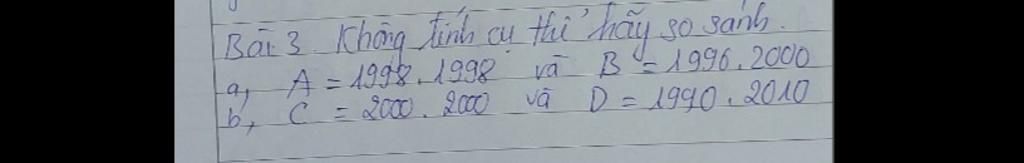 Bài 3 Không tính cụ thể hãy so sánh.
a, A = 1998.1998 và B = 1996.2000
b, C = 2000.2000 và D = 1990.2010